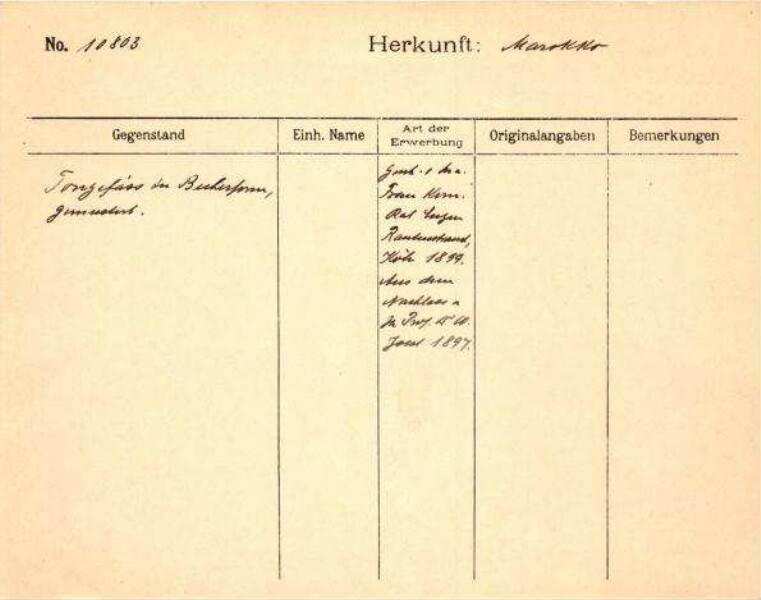 No. 10803
Herkunft: Marokko
Gegenstand
Einh. Name
Art der Erwerbung
Originalangaben
Bemerkungen
Tongefäss in Becherform,
gemustert.
Frau Kom.
Rat Eugen
Rautenstrauch,
Köln 1899.
Aus dem
Nachlass
Prof. W.
Joest 1897.